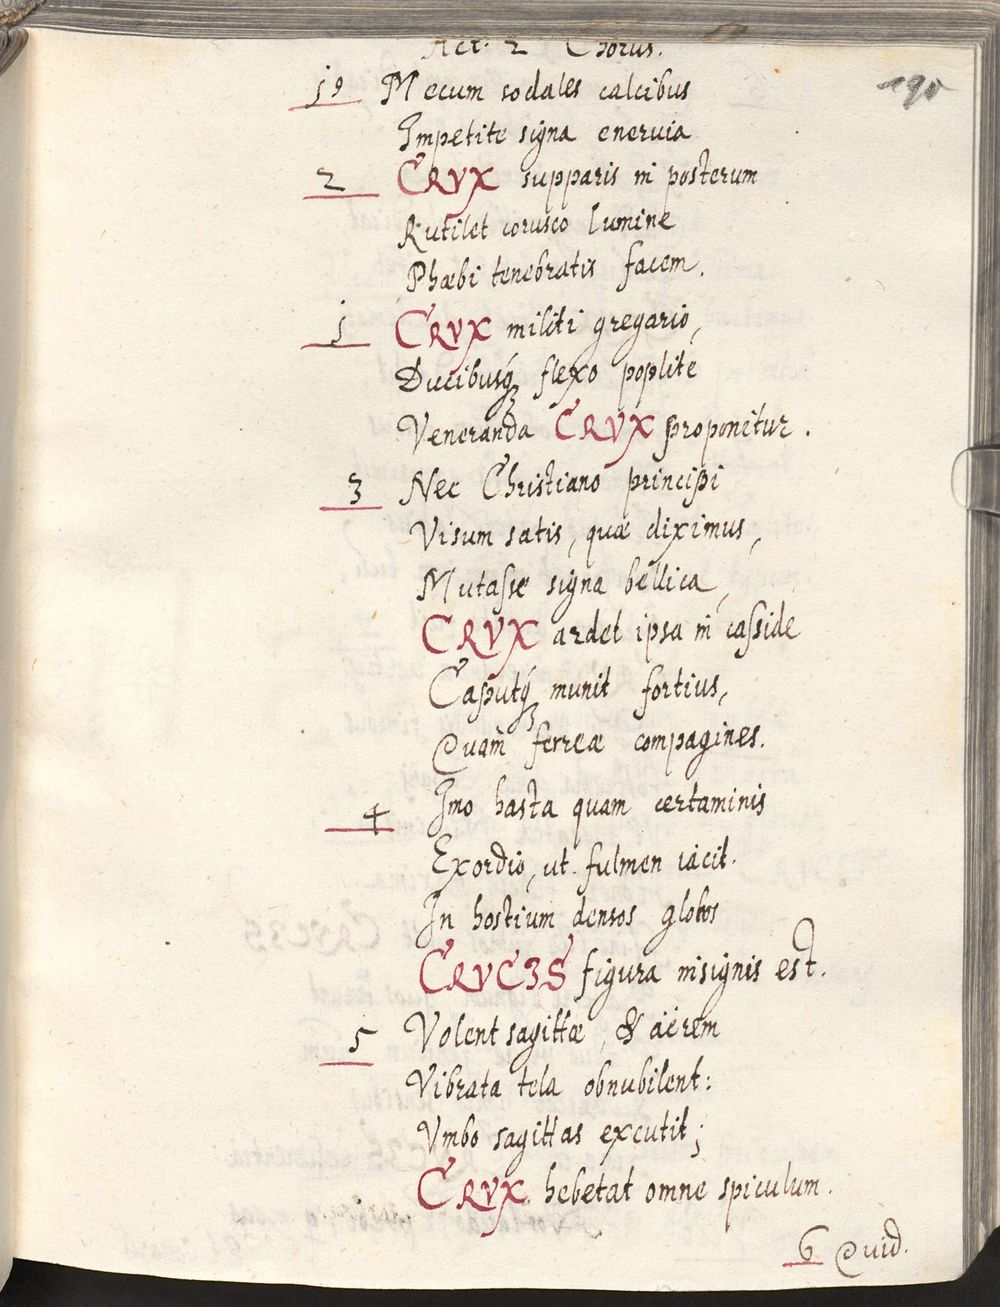 Act. 2 Chorus.
190
19 Mecum sodales calcibus
Impetite signa eneruia
2 CRVX supparis in posterum
Rutilet corusco lumine
Phæbi tenebratis facem.
1 CRVX militi gregario,
Ducibusq₃ flexo poplite
Veneranda CRVX proponitur.
3 Nec Christiano principi
Visum satis, quæ diximus,
Mutaſse signa bellica,
CRVX ardet ipsa in caſside
Caputq₃ munit fortius,
Quam̃ ferreæ compagines.
4 Imo hasta quam certaminis
Exordio, ut fulmen iacit.
In hostium densos globos
CRVCIS figura insignis est.
5 Volent sagittæ, & äerem
Vibrata tela obnubilent:
Vmbo sagittas excutit;
CRVX hebetat omne spiculum.
6 Quid.